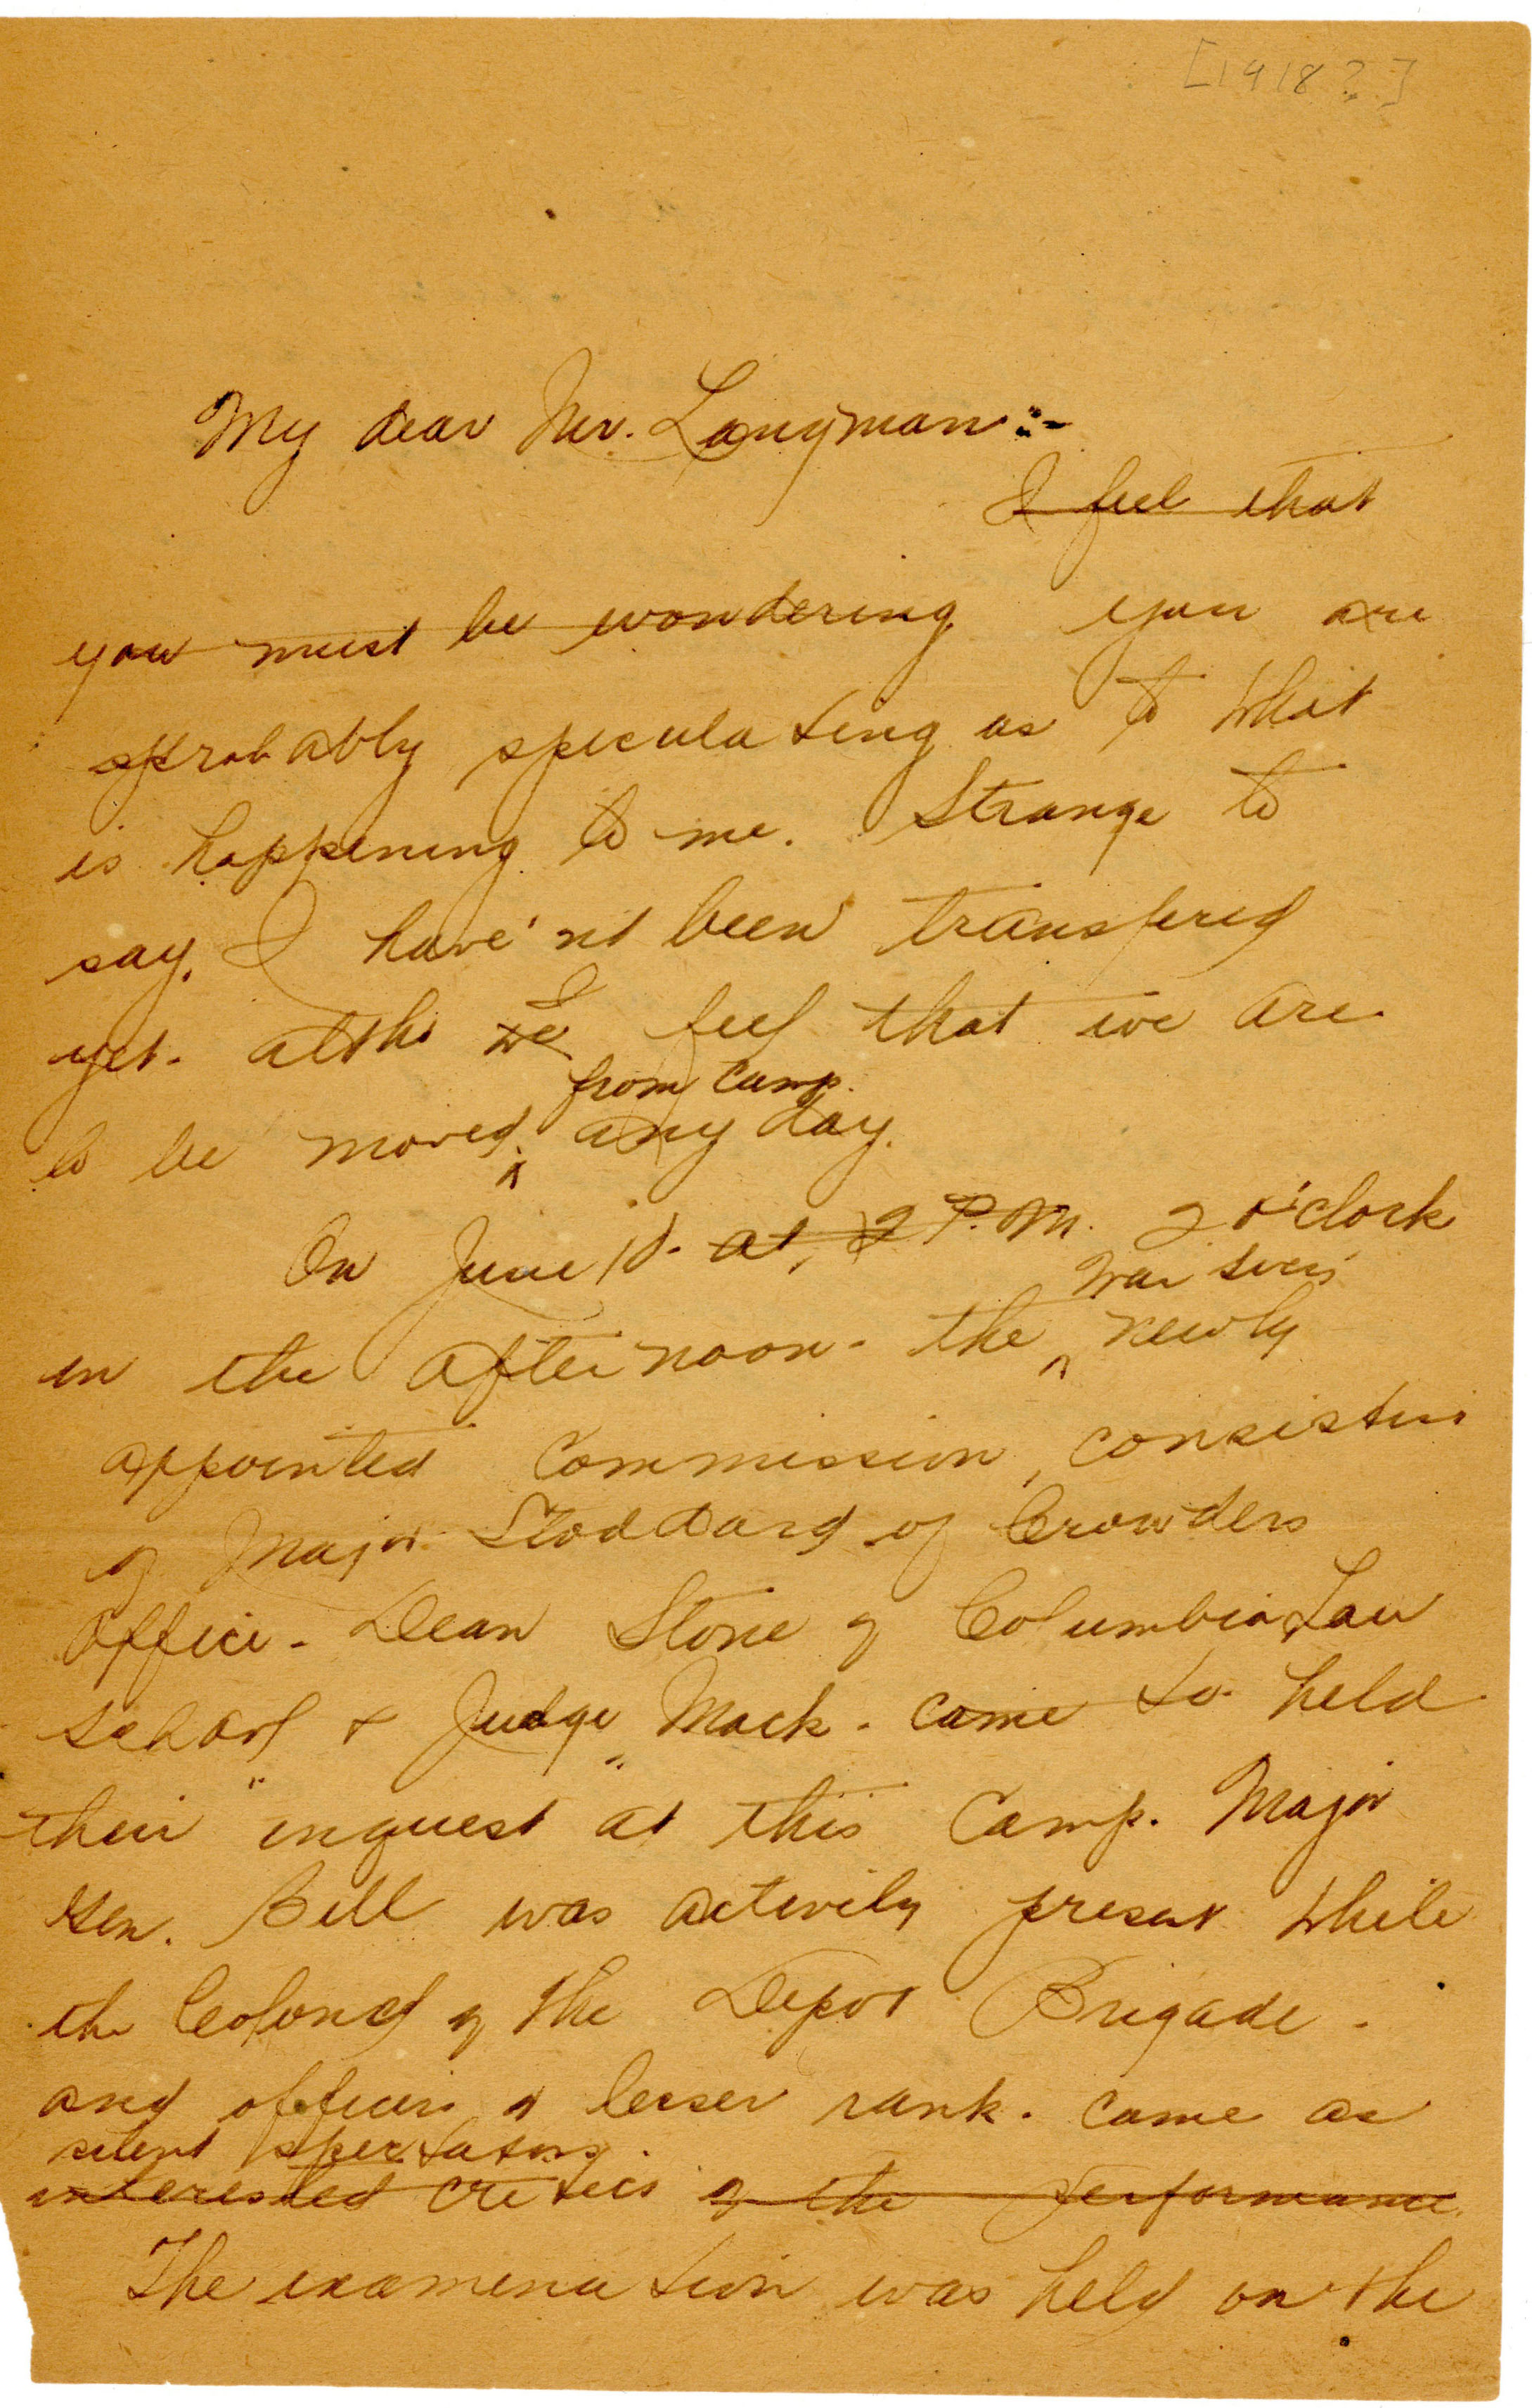 [1918?]
My dear Mr. Langman:-
I feel that
you must be wondering you are
probably speculating as to what
is happening to me. Strange to
say, I have'nt been transfered
yet - altho we I feel that we are
from camp.
to be moved any day.
On June 10 - at, 2 P.M. 2 o'clock
War Secs'
in the afternoon - the newly
appointed Commission, consisting
of Major Stoddard of Crowders
Office - Dean Stone of Columbia Law
School & Judge Mack - came to held
their "inquest" at this Camp. Major
Gen. Bell was actively present while
the Colonel of the Depot Brigade -
and officers of lesser rank - came as
silent spectators.
interested critics of the performance.
The examination was held on the